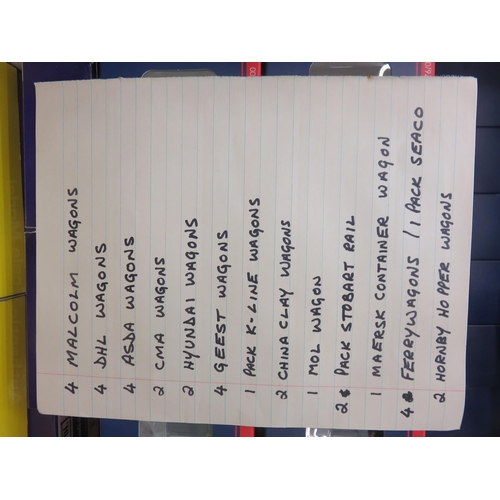 4 MALCOLM WAGONS
4 DHL WAGONS
4 ASDA WAGONS
2 CMA WAGONS
2 HYUNDAI WAGONS
4 GEEST WAGONS
1 PACK K-LINE WAGONS
2 CHINA CLAY WAGONS
1 MOL WAGON
2 PACK STOBART RAIL
1 MAERSK CONTAINER WAGON
4 FERRYWAGONS / 1 PACK SEACO
2 HORNBY HOPPER WAGONS